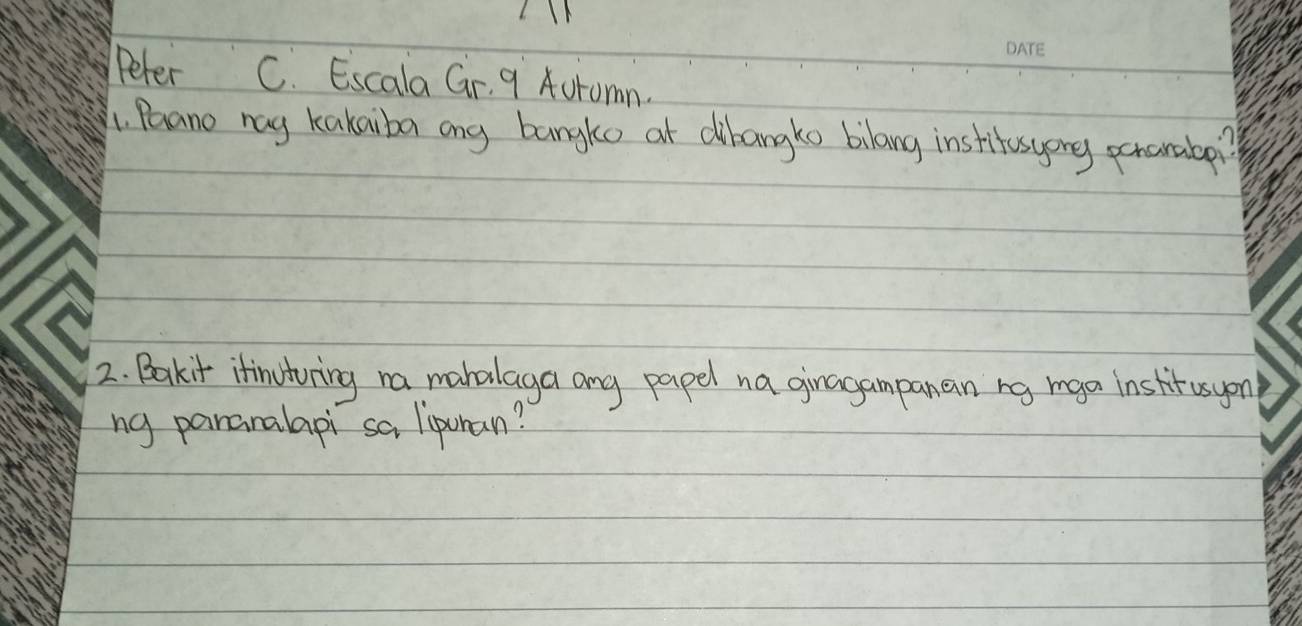 DATE
Peter C. Escala Gr. 9 Autumn.
1. Paano nag kakaiba ang bangko at dibangko bilang institusyong pananalapi?
2. Bakit itinuturing na mahalaga ang papel na ginagampanan ng mga institusyon
ng pananalapi sa lipunan?